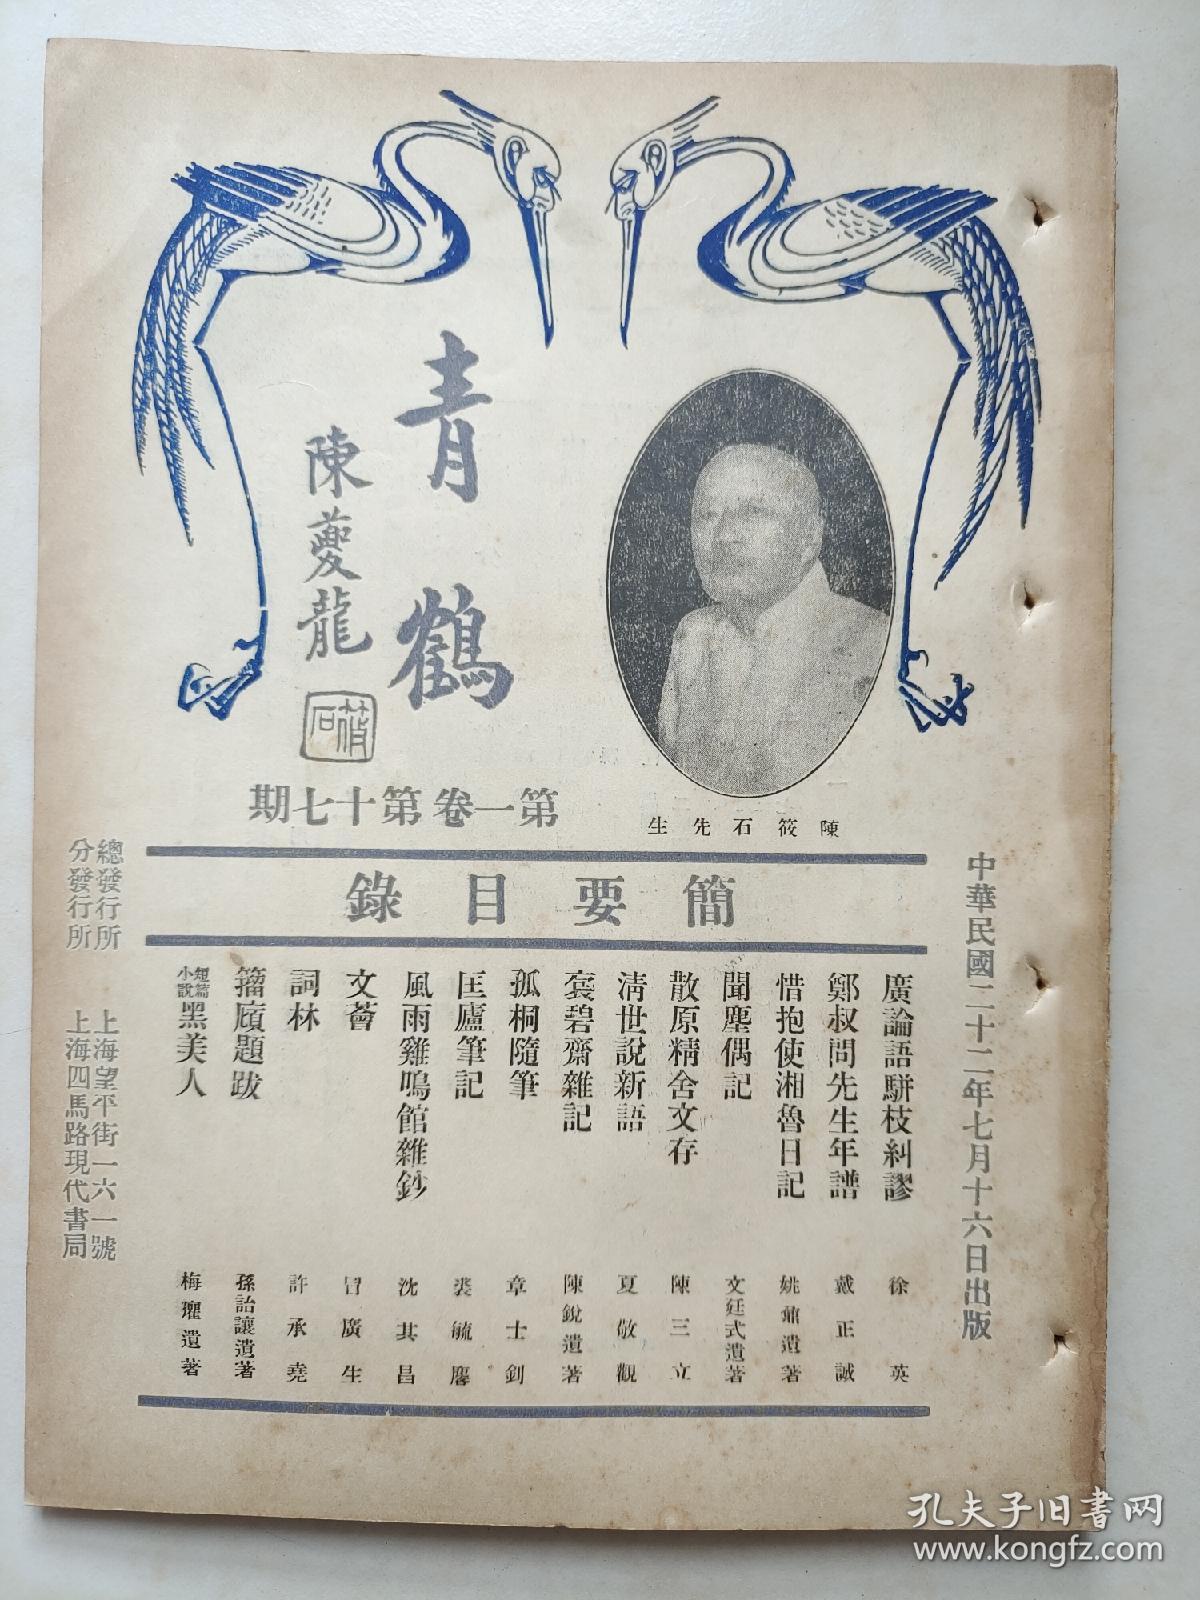 青鶴
陳夔龍
筱石
陳筱石先生
第一卷第十七期
中華民國二十二年七月十六日出版
簡要目錄
廣論語駢枝糾謬 徐英
鄭叔問先生年譜 戴正誠
惜抱使湘魯日記 姚鼐遺著
聞塵偶記 文廷式遺著
散原精舍文存 陳三立
清世說新語 夏敬觀
袌碧齋雜記 陳銳遺著
孤桐隨筆 章士釗
匡廬筆記 裘毓麐
風雨雞鳴館雜鈔 沈其昌
文薈 冒廣生
詞林 許承堯
籀廎題跋 孫詒讓遺著
短篇小說 黑美人 梅瓘遺著
總發行所 上海望平街一六一號
分發行所 上海四馬路現代書局
孔夫子旧书网
www.kongfz.com